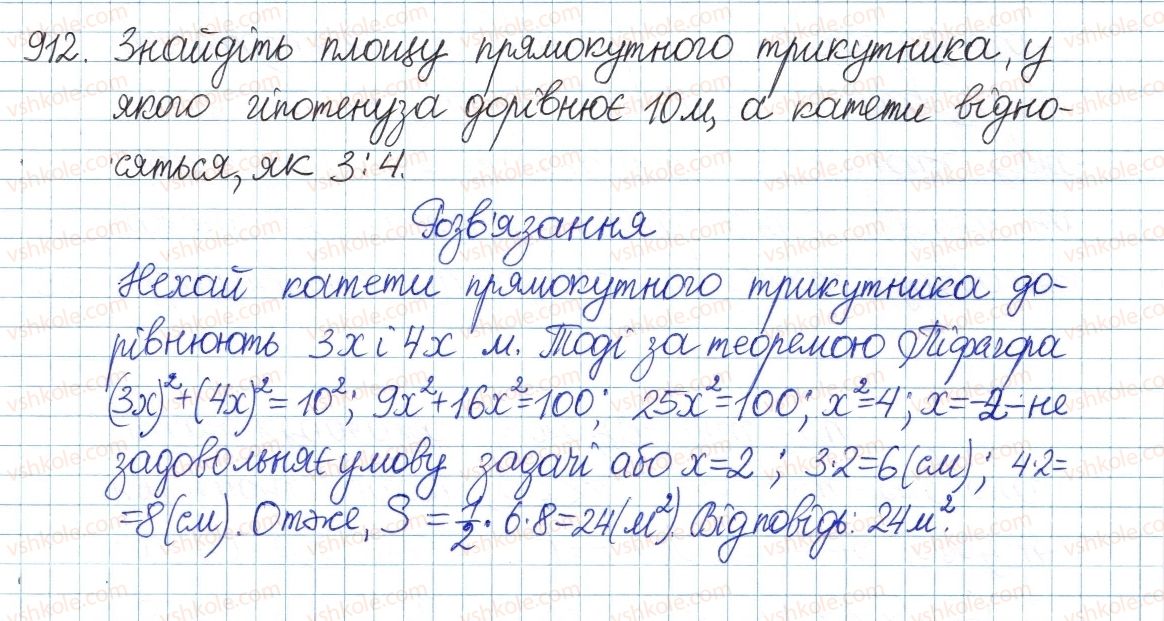 912. Знайдіть площу прямокутного трикутника, у
якого гіпотенуза дорівнює 10м, а катети відно-
сяться, як 3:4.
Розв'язання
Нехай катети прямокутного трикутника до-
рівнюють 3x і 4x м. Тоді за теоремою Піфагора
(3x)²+(4x)²=10²; 9x²+16x²=100; 25x²=100; x²=4; x=-2-не
задовольняє умову задачі або x=2; 3·2=6(см); 4·2=
=8(см). Отже, S = 1/2 · 6·8=24(м²). Відповідь: 24м².